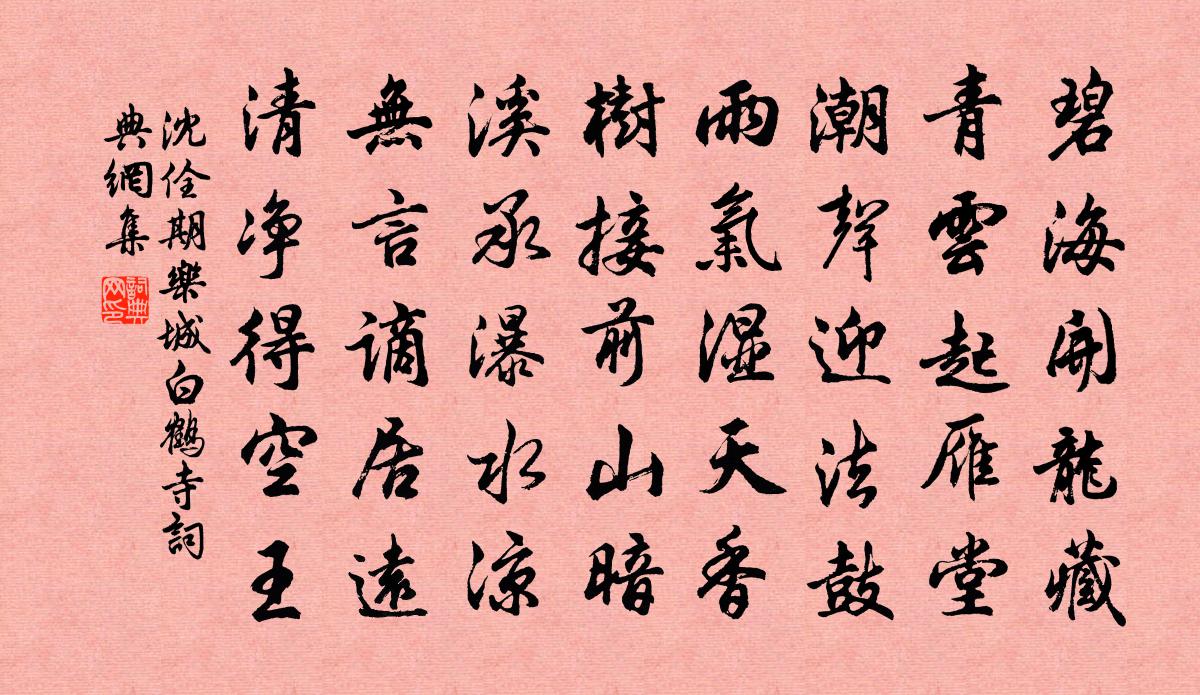 碧海開龍藏
青雲起雁堂
潮聲迎法鼓
雨氣湿天香
樹接前山暗
溪承瀑水凉
無言謫居遠
清净得空王
沈佺期樂城白鶴寺詞
典網集
詞典
网印